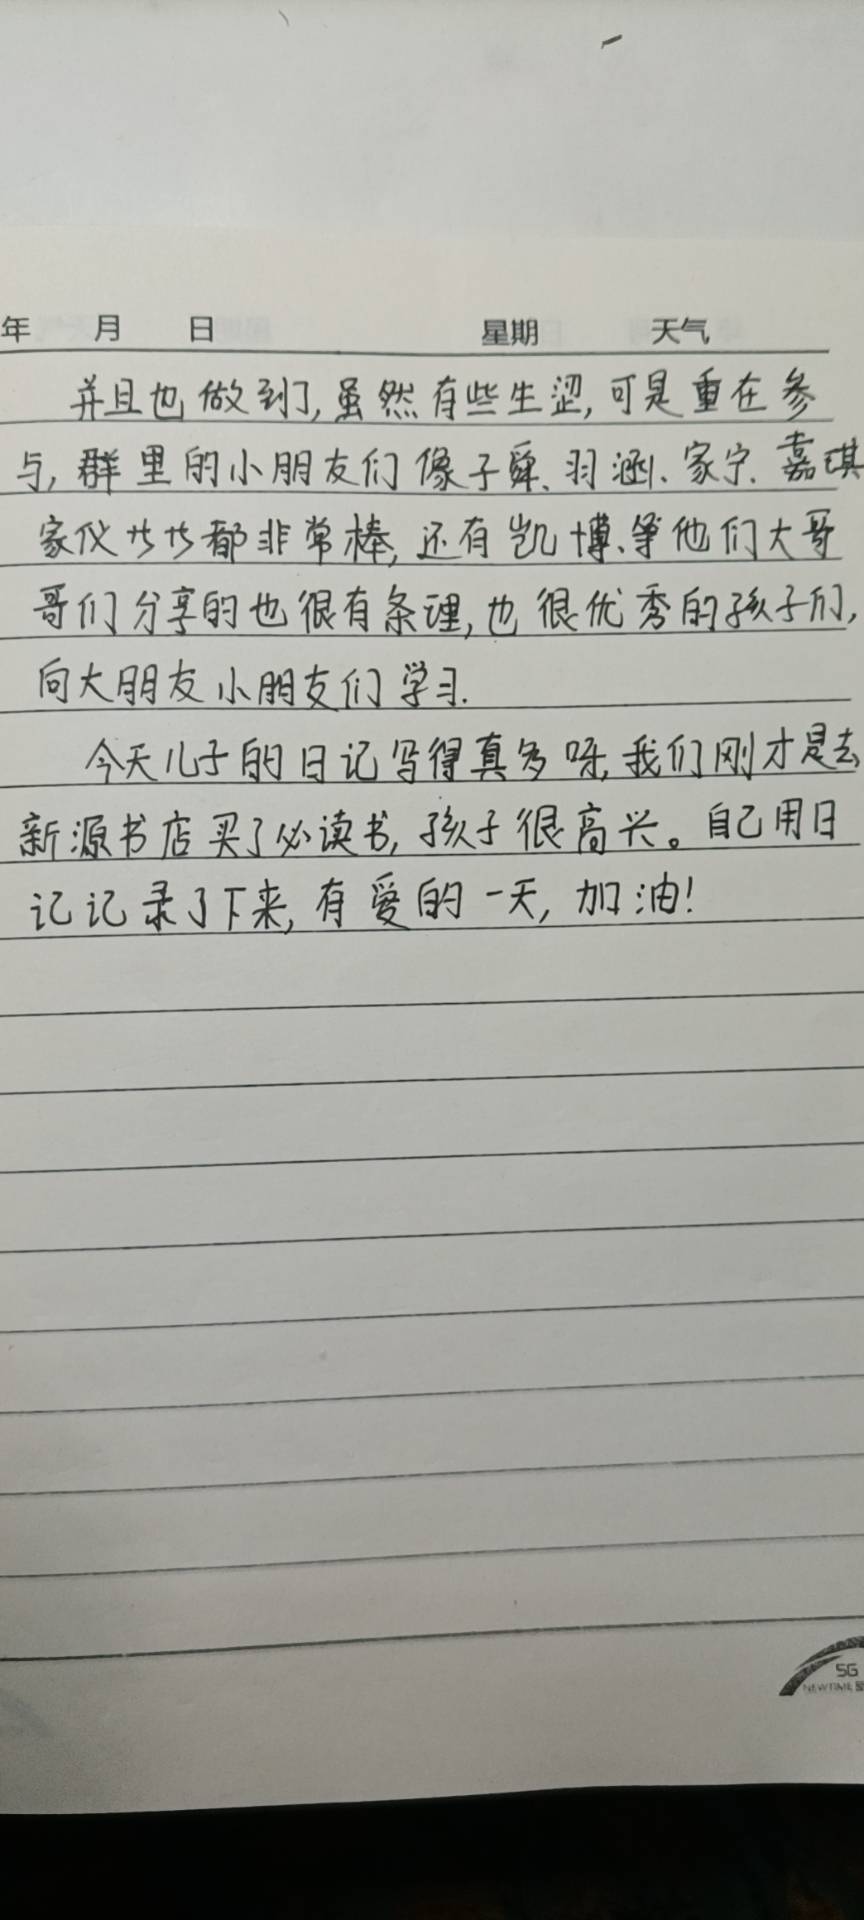 年 月 日 星期 天气
并且也做到了,虽然有些生涩,可是重在参
与,群里的小朋友们像子舜、羽涵、家宁、嘉琪
家仪 都非常棒,还有凯博、等他们大哥
哥们分享的也很有条理,也很优秀的孩子们,
向大朋友小朋友们学习.
今天儿子的日记写得真多呀,我们刚才是去
新源书店买了必读书,孩子很高兴。自己用日
记记录了下来,有爱的一天,加油!
5G
NEWTIME